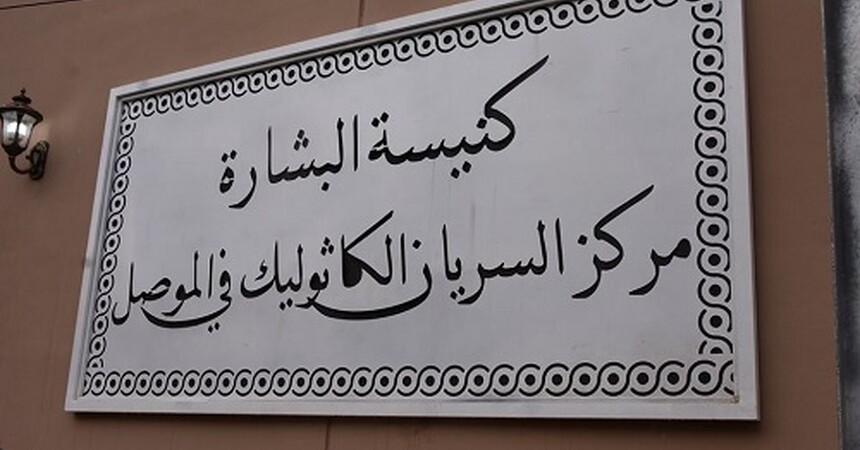 كنيسة البشارة
مركز السريان الكاثوليك في الموصل